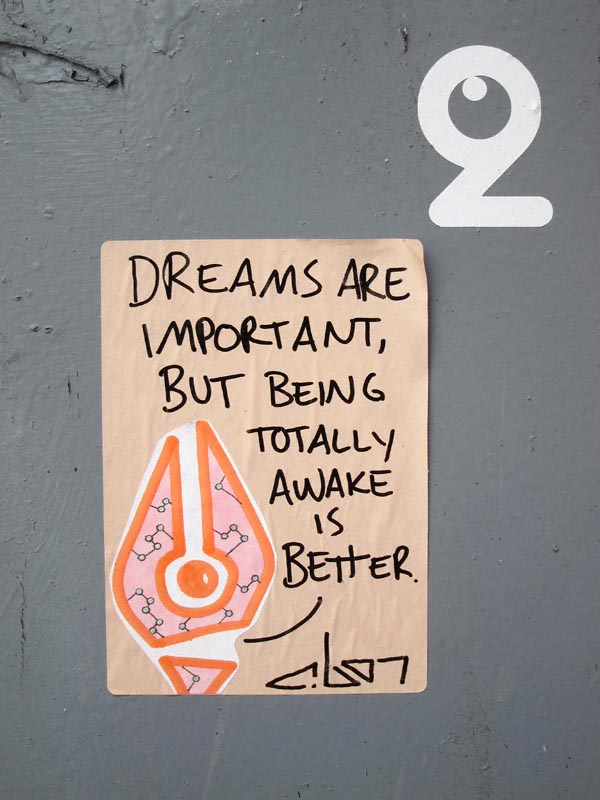 2
DREAMS ARE
IMPORTANT,
BUT BEING
TOTALLY
AWAKE
IS
BETTER.